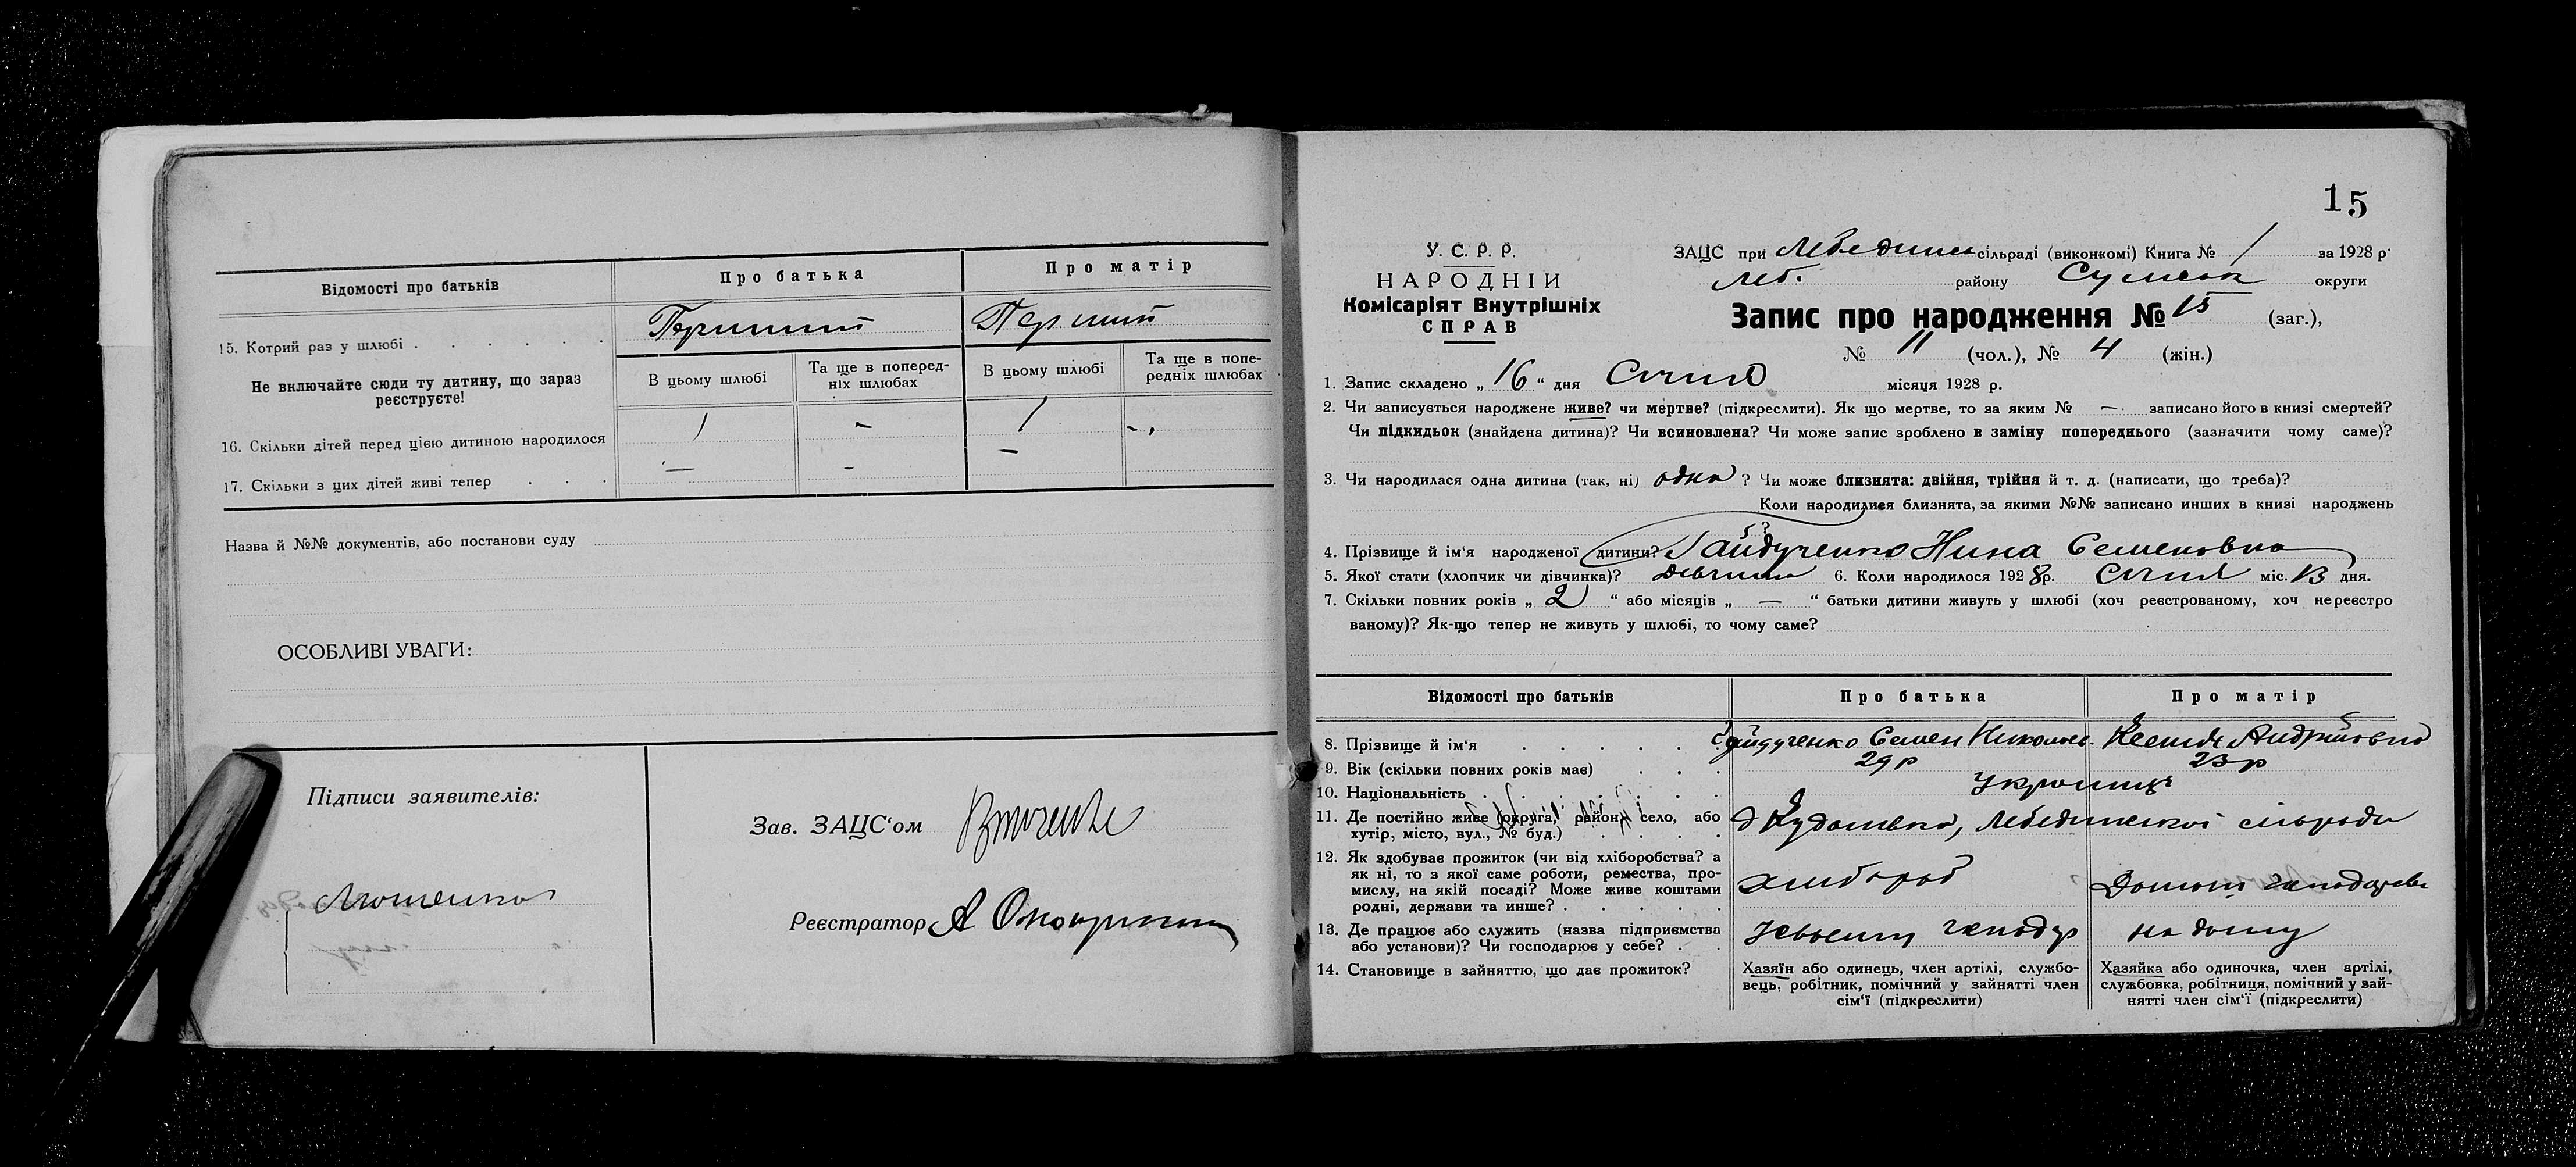 Відомості про батьків
Про батька
Про матір
15. Котрий раз у шлюбі . . . . . .
Перший
Перший
Не включайте сюди ту дитину, що зараз
реєструєте!
В цьому шлюбі
Та ще в поперед-
ніх шлюбах
В цьому шлюбі
Та ще в попе-
редніх шлюбах
16. Скільки дітей перед цією дитиною народилося
1 - 1 -
17. Скільки з цих дітей живі тепер . . .
— - —
Назва й №№ документів, або постанови суду
ОСОБЛИВІ УВАГИ:
Підписи заявителів:
Зав. ЗАЦС‘ом
Реєстратор
15
У. С. Р. Р.
НАРОДНІЙ
Комісаріят Внутрішніх
СПРАВ
ЗАЦС при Лебединск сільраді (виконкомі) Книга № 1 за 1928 р.
Леб. району Сумськ округи
Запис про народження № 15 (заг.),
№ 11 (чол.), № 4 (жін.)
1. Запис складено „ 16 “ дня Січня місяця 1928 р.
2. Чи записується народжене живе? чи мертве? (підкреслити). Як що мертве, то за яким № — записано його в книзі смертей?
Чи підкидьок (знайдена дитина)? Чи всиновлена? Чи може запис зроблено в заміну попереднього (зазначити чому саме)?
3. Чи народилася одна дитина (так, ні) одна ? Чи може близнята: двійня, трійня й т. д. (написати, що треба)?
Коли народилися близнята, за якими №№ записано инших в книзі народжень
4. Прізвище й ім‘я народженої дитини? Гайдученко Нина Семеновна
5. Якої стати (хлопчик чи дівчинка)? Дівчина 6. Коли народилося 1928 р. Січня міс. 13 дня.
7. Скільки повних років „ 2 “ або місяців „ — “ батьки дитини живуть у шлюбі (хоч реєстрованому, хоч нереєстро
ваному)? Як-що тепер не живуть у шлюбі, то чому саме?
Відомості про батьків
Про батька
Про матір
8. Прізвище й ім‘я . . . . . .
Гайдученко Семен Николаев.
Ксенія Андрійовна
9. Вік (скільки повних років має) . . .
29 р
23 р
10. Національність . . . . . . . .
Українці
11. Де постійно живе (округа, район, село, або
хутір, місто, вул., № буд.) . . . .
Кудановка, Лебединської сільради
12. Як здобуває прожиток (чи від хліборобства? а
як ні, то з якої саме роботи, ремества, про-
мислу, на якій посаді? Може живе коштами
родні, держави та инше? . . . . .
хлібороб
13. Де працює або служить (назва підприємства
або установи)? Чи господарює у себе? . .
на дому
14. Становище в зайняттю, що дає прожиток?
Хазяїн або одинець, член артілі, службо-
вець, робітник, помічний у зайнятті член
сім‘ї (підкреслити)
Хазяйка або одиночка, член артілі,
службовка, робітниця, помічний у зай-
нятті член сім‘ї (підкреслити)